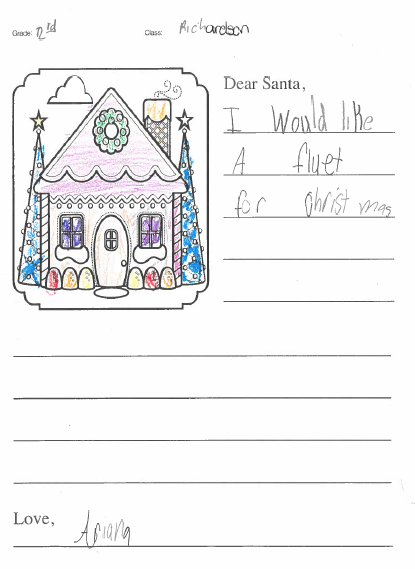 Grade: 2nd Class: Richardson
Dear Santa,
I Would like
A fluet
for christmas
Love,
Ariana